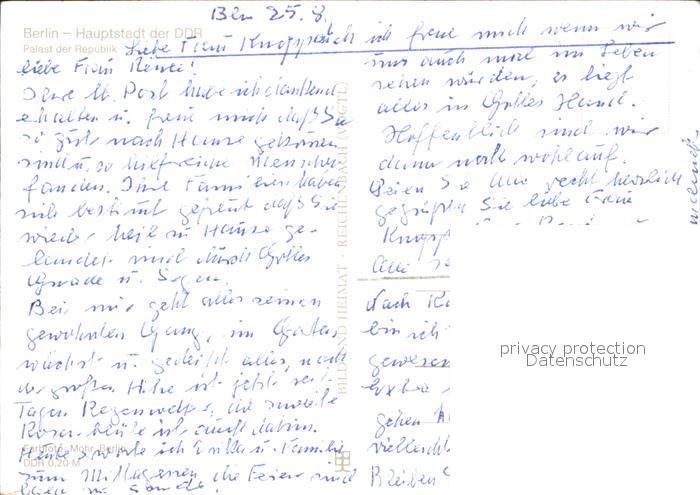 Bln 25.8.
Berlin – Hauptstadt der DDR
Palast der Republik
Liebe Frau Knapp,
liebe Frau
Ihre lb. Post habe ich dankend
erhalten u. freue mich daß Sie
so gut nach Hause gekommen
sind u. so hilfreiche Menschen
fanden. Ihre Familien haben
sich bestimmt gefreut daß Sie
wieder heil zu Hause ge-
landet sind durch Gottes
Gnade u. Segen.
Bei mir geht alles seinen
gewohnten Gang, im Garten
wächst u. gedeiht alles, nach
der großen Hitze ist jetzt seit
Tagen Regenwetter, die zweite
Rosenblüte ist auch dahin.
Heute erwarte ich Erika u. Familie
zum Mittagessen, die Ferien sind
Farbfoto: Mohr, Berlin
DDR 0,20 M
BILD UND HEIMAT · REICHENBACH (VOGTL)
auch ich freue mich wenn wir
uns auch mal im Leben
sehen würden, es liegt
alles in Gottes Hand.
Hoffentlich sind wir
dann noch wohlauf.
Seien Sie nun recht herzlich
gegrüßt Sie liebe Frau
Knapp
Nach
bin ich
gewesen
gehen
vielleicht
Bleiben
privacy protection
Datenschutz